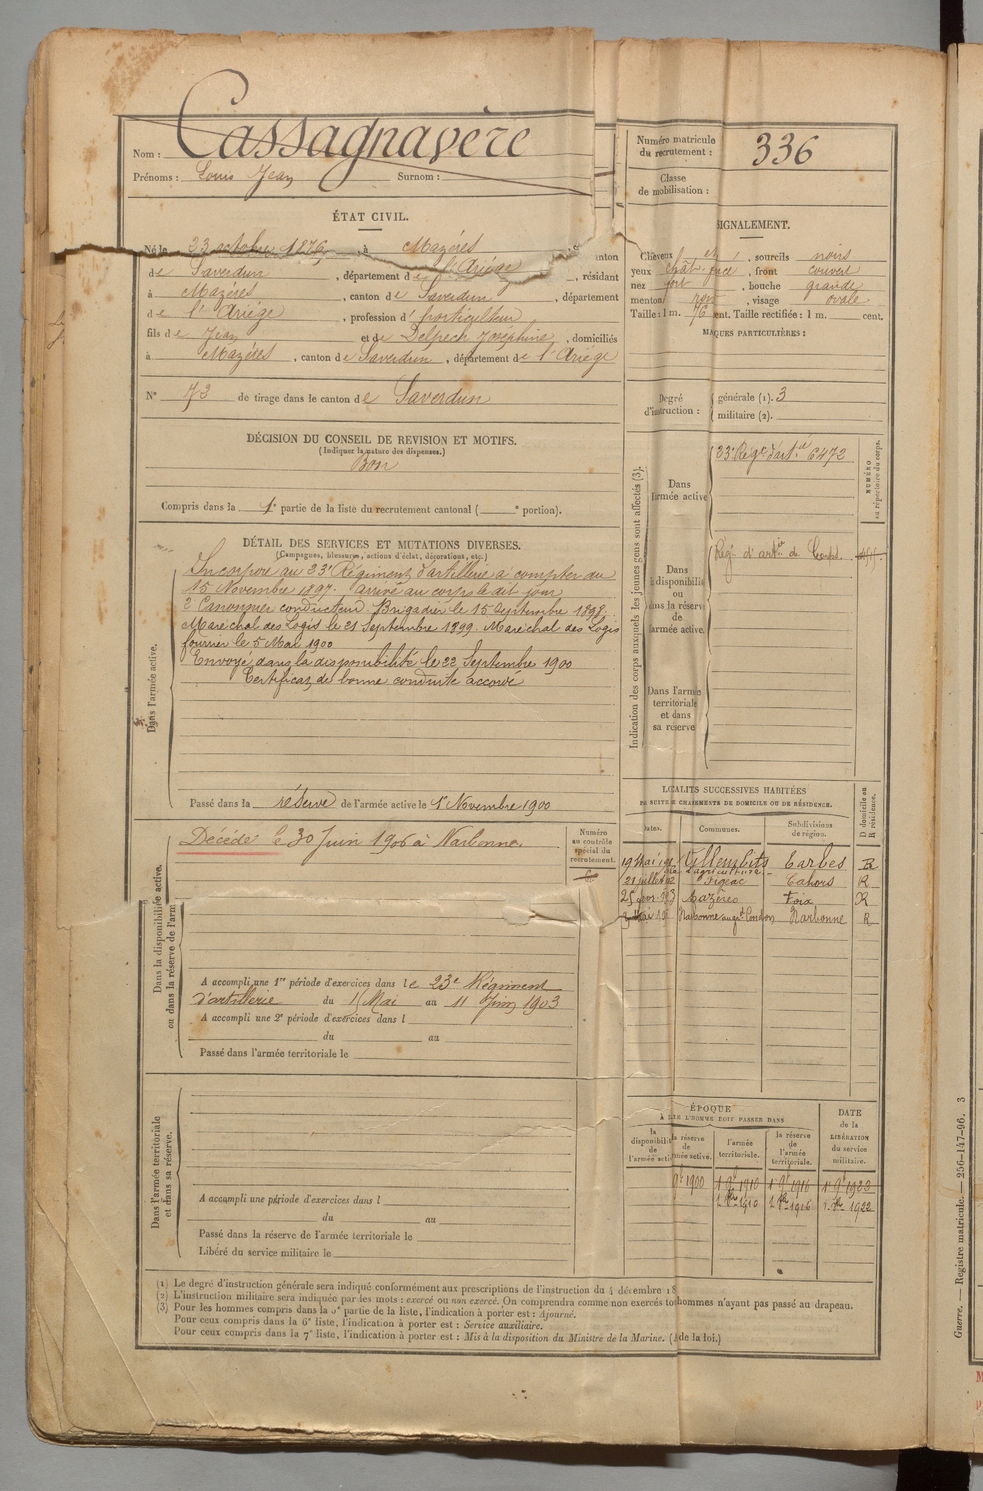 Nom : Cassagnavère
Prénoms : Louis Jean Surnom :
Numéro matricule du recrutement : 336
Classe de mobilisation :
ÉTAT CIVIL.
Né le 23 octobre 1876, à Mazéres canton
de Saverdun, département de l'Ariége, résidant
à Mazéres, canton de Saverdun, département
de l'Ariége, profession d'horticulteur
fils de Jean et de Delpech Joséphine, domiciliés
à Mazéres, canton de Saverdun, département de l'Ariége
N° 73 de tirage dans le canton de Saverdun
SIGNALEMENT.
Cheveux et, sourcils noirs
yeux chât. , front couvert
nez fort, bouche grande
menton rond, visage ovale.
Taille : 1 m. 76 cent. Taille rectifiée : 1 m. cent.
MARQUES PARTICULIÈRES :
Degré d'instruction : générale (1). 3
militaire (2).
DÉCISION DU CONSEIL DE REVISION ET MOTIFS.
(Indiquez la nature des dispenses.)
Bon
Compris dans la 1e partie de la liste du recrutement cantonal ( e portion).
DÉTAIL DES SERVICES ET MUTATIONS DIVERSES.
(Campagnes, blessures, actions d'éclat, décorations, etc.)
Dans l'armée active.
Incorporé au 23e Régiment d'artillerie à compter du
15 Novembre 1897. arrivé au corps le dit jour
2e Canonnier conducteur. Brigadier le 15 Septembre 1898.
Maréchal des Logis le 21 Septembre 1899. Maréchal des Logis
fourrier le 5 Mai 1900
Envoyé dans la disponibilité le 22 Septembre 1900
Certificat de bonne conduite accordé
Passé dans la réserve de l'armée active le 1er Novembre 1900
Indication des corps auxquels les jeunes gens sont affectés (3).
NUMÉRO au répertoire du corps.
Dans l'armée active
23e Régt d'artie 6472
Dans la disponibilité ou dans la réserve de l'armée active.
Régt d'artie de Corps.
Dans l'armée territoriale et dans sa réserve
Dans la disponibilité de l'armée active. ou dans la réserve de l'arm
Décédé le 30 Juin 1906 à Narbonne.
Numéro au contrôle spécial du recrutement.
A accompli une 1re période d'exercices dans le 23e Régiment
d'artillerie du 15 Mai au 11 Juin 1903
A accompli une 2e période d'exercices dans l
du au
Passé dans l'armée territoriale le
LOCALITÉS SUCCESSIVES HABITÉES
PAR SUITE DE CHANGEMENTS DE DOMICILE OU DE RÉSIDENCE.
Dates. Communes. Subdivisions de région. D domicile ou R résidence.
19 Mai Villembits Tarbes R
21 juillet 02 Figeac Cahors R
Mazères Foix R
Narbonne Narbonne R
Dans l'armée territoriale et dans sa réserve.
A accompli une période d'exercices dans l
du au
Passé dans la réserve de l'armée territoriale le
Libéré du service militaire le
ÉPOQUE
À LAQUELLE L'HOMME DOIT PASSER DANS
la disponibilité de l'armée active
la réserve de l'armée active.
l'armée territoriale.
la réserve de l'armée territoriale.
DATE de la LIBÉRATION du service militaire.
9bre 1900 1 9bre 1910 1 9bre 1916 1er 9bre 1922
1910 1916 1922
(1) Le degré d'instruction générale sera indiqué conformément aux prescriptions de l'instruction du 4 décembre 18
(2) L'instruction militaire sera indiquée par les mots : exercé ou non exercé. On comprendra comme non exercés to hommes n'ayant pas passé au drapeau.
(3) Pour les hommes compris dans la 5e partie de la liste, l'indication à porter est : Ajourné.
Pour ceux compris dans la 6e liste, l'indication à porter est : Service auxiliaire.
Pour ceux compris dans la 7e liste, l'indication à porter est : Mis à la disposition du Ministre de la Marine. ( de la loi.)
Guerre. — Registre matricule. — 256-147-96. 3